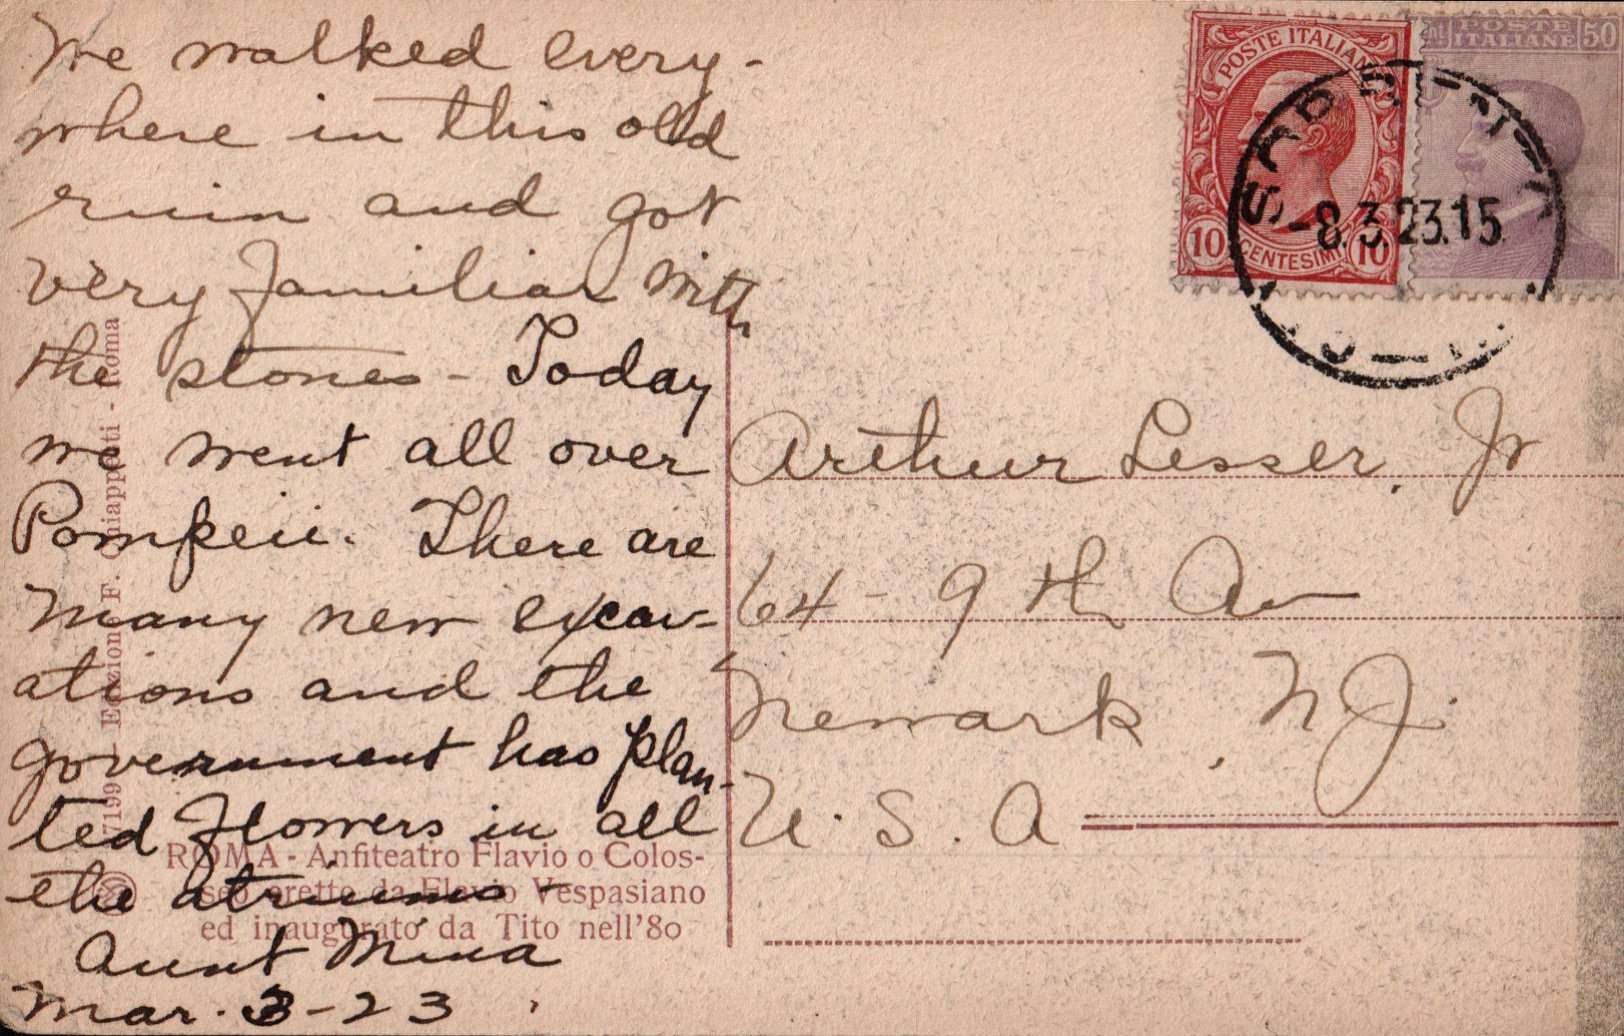 We walked every-
where in this old
ruin and got
very familiar with
the stones - Today
we went all over
Pompeii. There are
many new excav-
ations and the
government has plan-
ted flowers in all
the atriums -
Aunt Mina
Mar. 3-23
Arthur Lesser, Jr
64 - 9th Av
Newark, N.J.
U.S.A
POSTE ITALIANE
10 CENTESIMI 10
POSTE ITALIANE 50
-8.3.23.15
7199 - Edizioni F. Chiappetti - Roma
ROMA - Anfiteatro Flavio o Colos-
seo eretto da Flavio Vespasiano
ed inaugurato da Tito nell'80